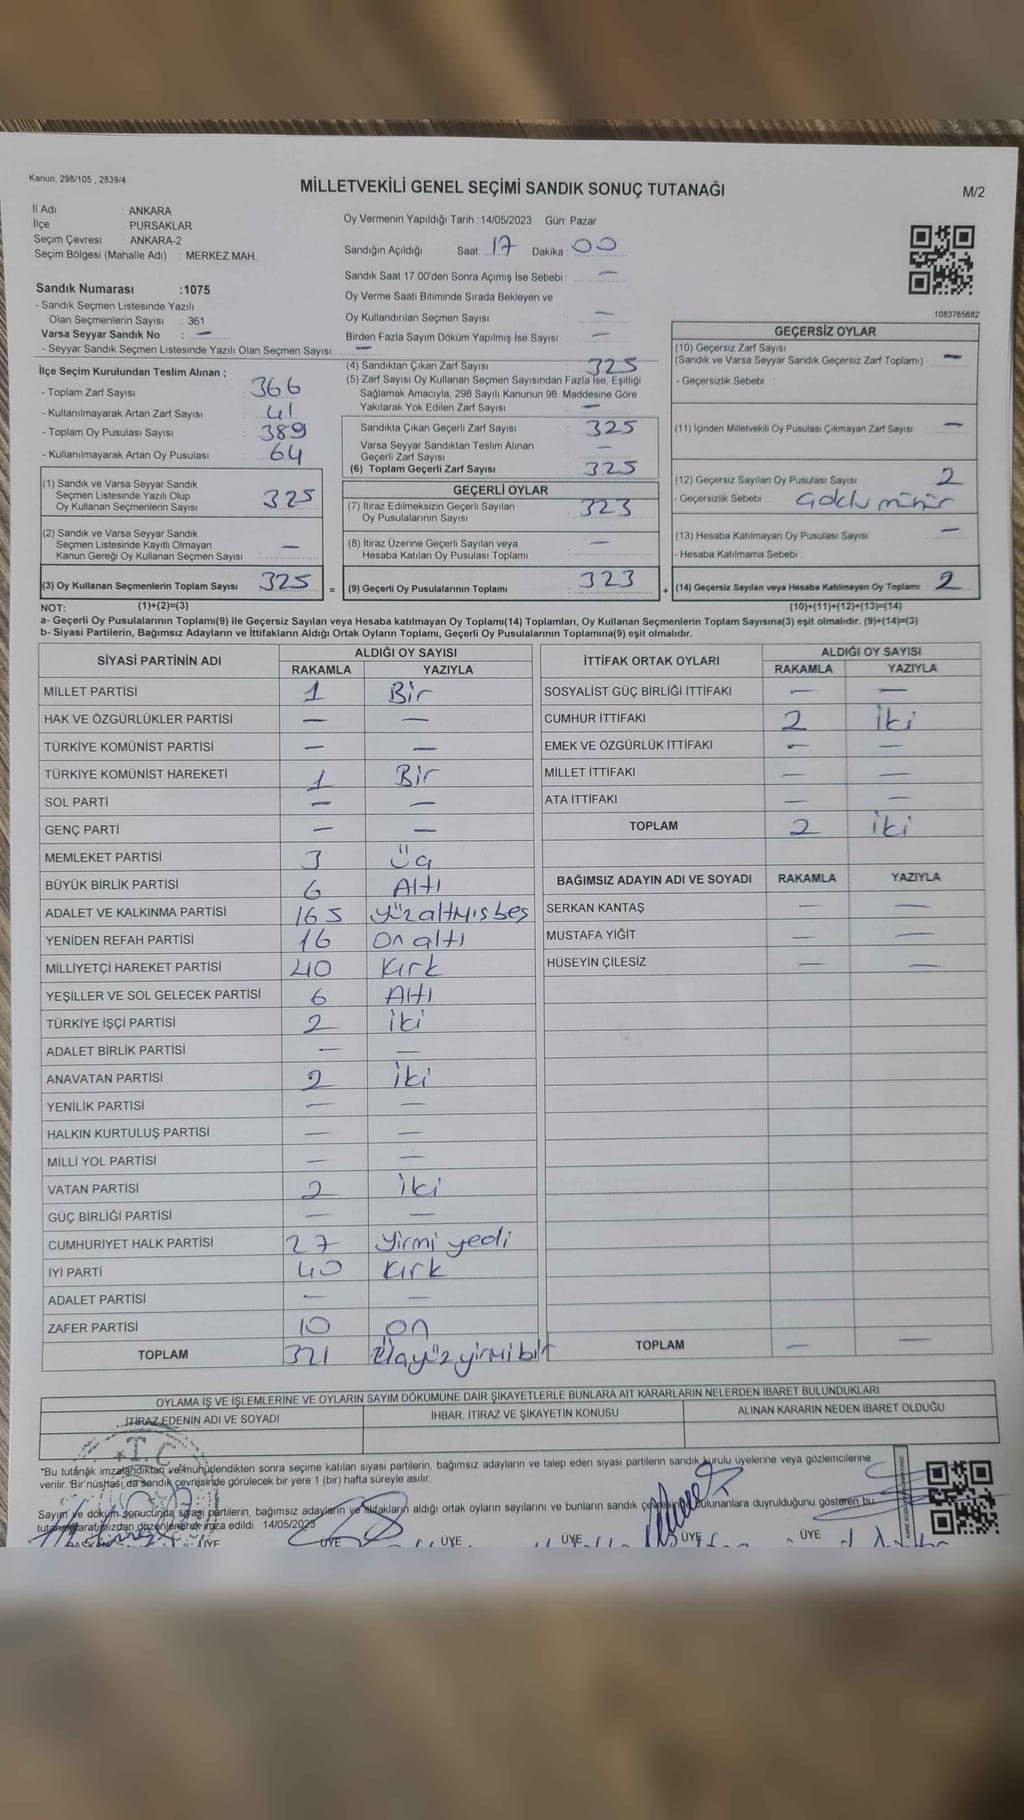 Kanun: 298/105 , 2839/4
MİLLETVEKİLİ GENEL SEÇİMİ SANDIK SONUÇ TUTANAĞI
M/2
İl Adı : ANKARA
İlçe : PURSAKLAR
Seçim Çevresi : ANKARA-2
Seçim Bölgesi (Mahalle Adı) : MERKEZ MAH.
Oy Vermenin Yapıldığı Tarih :14/05/2023 Gün: Pazar
Sandığın Açıldığı Saat: 17 Dakika: 00
Sandık Saat 17.00'den Sonra Açımış İse Sebebi : —
Oy Verme Saati Bitiminde Sırada Bekleyen ve
Oy Kullandırılan Seçmen Sayısı : —
Birden Fazla Sayım Döküm Yapılmış İse Sayısı : —
1083765682
Sandık Numarası :1075
- Sandık Seçmen Listesinde Yazılı
Olan Seçmenlerin Sayısı : 361
Varsa Seyyar Sandık No : —
- Seyyar Sandık Seçmen Listesinde Yazılı Olan Seçmen Sayısı: —
İlçe Seçim Kurulundan Teslim Alınan ;
- Toplam Zarf Sayısı : 366
- Kullanılmayarak Artan Zarf Sayısı : 41
- Toplam Oy Pusulası Sayısı : 389
- Kullanılmayarak Artan Oy Pusulası : 64
(1) Sandık ve Varsa Seyyar Sandık
Seçmen Listesinde Yazılı Olup
Oy Kullanan Seçmenlerin Sayısı 325
(2) Sandık ve Varsa Seyyar Sandık
Seçmen Listesinde Kayıtlı Olmayan
Kanun Gereği Oy Kullanan Seçmen Sayısı —
(3) Oy Kullanan Seçmenlerin Toplam Sayısı 325 =
(1)+(2)=(3)
(4) Sandıktan Çıkan Zarf Sayısı : 325
(5) Zarf Sayısı Oy Kullanan Seçmen Sayısından Fazla İse, Eşitliği
Sağlamak Amacıyla, 298 Sayılı Kanunun 98. Maddesine Göre
Yakılarak Yok Edilen Zarf Sayısı : —
Sandıkta Çıkan Geçerli Zarf Sayısı : 325
Varsa Seyyar Sandıktan Teslim Alınan
Geçerli Zarf Sayısı : —
(6) Toplam Geçerli Zarf Sayısı : 325
GEÇERLİ OYLAR
(7) İtiraz Edilmeksizin Geçerli Sayılan
Oy Pusulalarının Sayısı 323
(8) İtiraz Üzerine Geçerli Sayılan veya
Hesaba Katılan Oy Pusulası Toplamı —
(9) Geçerli Oy Pusulalarının Toplamı 323 +
GEÇERSİZ OYLAR
(10) Geçersiz Zarf Sayısı
(Sandık ve Varsa Seyyar Sandık Geçersiz Zarf Toplamı) —
- Geçersizlik Sebebi :
(11) İçinden Milletvekili Oy Pusulası Çıkmayan Zarf Sayısı —
(12) Geçersiz Sayılan Oy Pusulası Sayısı 2
- Geçersizlik Sebebi :
(13) Hesaba Katılmayan Oy Pusulası Sayısı —
- Hesaba Katılmama Sebebi
(14) Geçersiz Sayılan veya Hesaba Katılmayan Oy Toplamı 2
(10)+(11)+(12)+(13)=(14)
NOT:
a- Geçerli Oy Pusulalarının Toplamı(9) ile Geçersiz Sayılan veya Hesaba katılmayan Oy Toplamı(14) Toplamları, Oy Kullanan Seçmenlerin Toplam Sayısına(3) eşit olmalıdır. (9)+(14)=(3)
b- Siyasi Partilerin, Bağımsız Adayların ve İttifakların Aldığı Ortak Oyların Toplamı, Geçerli Oy Pusulalarının Toplamına(9) eşit olmalıdır.
SİYASİ PARTİNİN ADI
ALDIĞI OY SAYISI
RAKAMLA YAZIYLA
MİLLET PARTİSİ 1 Bir
HAK VE ÖZGÜRLÜKLER PARTİSİ — —
TÜRKİYE KOMÜNİST PARTİSİ — —
TÜRKİYE KOMÜNİST HAREKETİ 1 Bir
SOL PARTİ — —
GENÇ PARTİ — —
MEMLEKET PARTİSİ 3 Üç
BÜYÜK BİRLİK PARTİSİ 6 Altı
ADALET VE KALKINMA PARTİSİ 165 Yüzaltmışbeş
YENİDEN REFAH PARTİSİ 16 On altı
MİLLİYETÇİ HAREKET PARTİSİ 40 Kırk
YEŞİLLER VE SOL GELECEK PARTİSİ 6 Altı
TÜRKİYE İŞÇİ PARTİSİ 2 İki
ADALET BİRLİK PARTİSİ — —
ANAVATAN PARTİSİ 2 İki
YENİLİK PARTİSİ — —
HALKIN KURTULUŞ PARTİSİ — —
MİLLİ YOL PARTİSİ — —
VATAN PARTİSİ 2 İki
GÜÇ BİRLİĞİ PARTİSİ — —
CUMHURİYET HALK PARTİSİ 27 Yirmi yedi
İYİ PARTİ 40 Kırk
ADALET PARTİSİ — —
ZAFER PARTİSİ 10 On
TOPLAM 321 Üçyüzyirmibir
İTTİFAK ORTAK OYLARI
ALDIĞI OY SAYISI
RAKAMLA YAZIYLA
SOSYALİST GÜÇ BİRLİĞİ İTTİFAKI — —
CUMHUR İTTİFAKI 2 İki
EMEK VE ÖZGÜRLÜK İTTİFAKI — —
MİLLET İTTİFAKI — —
ATA İTTİFAKI — —
TOPLAM 2 İki
BAĞIMSIZ ADAYIN ADI VE SOYADI RAKAMLA YAZIYLA
SERKAN KANTAŞ — —
MUSTAFA YİĞİT — —
HÜSEYİN ÇİLESİZ — —
TOPLAM — —
OYLAMA İŞ VE İŞLEMLERİNE VE OYLARIN SAYIM DÖKÜMÜNE DAİR ŞİKAYETLERLE BUNLARA AİT KARARLARIN NELERDEN İBARET BULUNDUKLARI
İTİRAZ EDENİN ADI VE SOYADI
İHBAR, İTİRAZ VE ŞİKAYETİN KONUSU
ALINAN KARARIN NEDEN İBARET OLDUĞU
T.C
*Bu tutanak imzalandıktan ve mühürlendikten sonra seçime katılan siyasi partilerin, bağımsız adayların ve talep eden siyasi partilerin sandık kurulu üyelerine veya gözlemcilerine
verilir. Bir nüshası da sandık çevresinde görülecek bir yere 1 (bir) hafta süreyle asılır.
Sayım ve döküm sonucunda siyasi partilerin, bağımsız adayların ve ittifakların aldığı ortak oyların sayılarını ve bunların sandık çevresinde bulunanlara duyurulduğunu gösteren bu
tutanak tarafımızdan düzenlenerek imza edildi. 14/05/2023
BAŞKAN ÜYE ÜYE ÜYE ÜYE ÜYE ÜYE